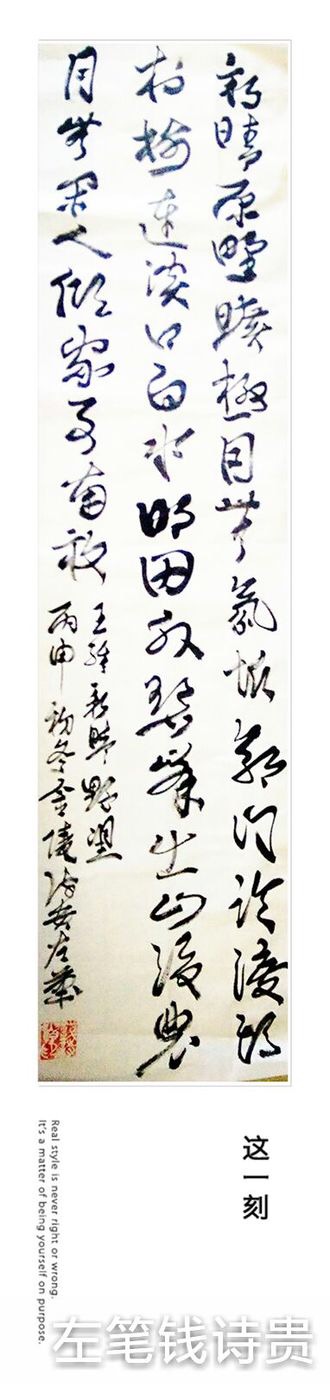 新晴原野曠極目無氛垢郭门臨渡頭
村樹連溪口白水明田外碧峯出山後農
月無閑人傾家事南畝
王維新晴野望
丙申初冬金陵詩貴左筆
这一刻
Real style is never right or wrong.
It's a matter of being yourself on purpose.
左笔钱诗贵